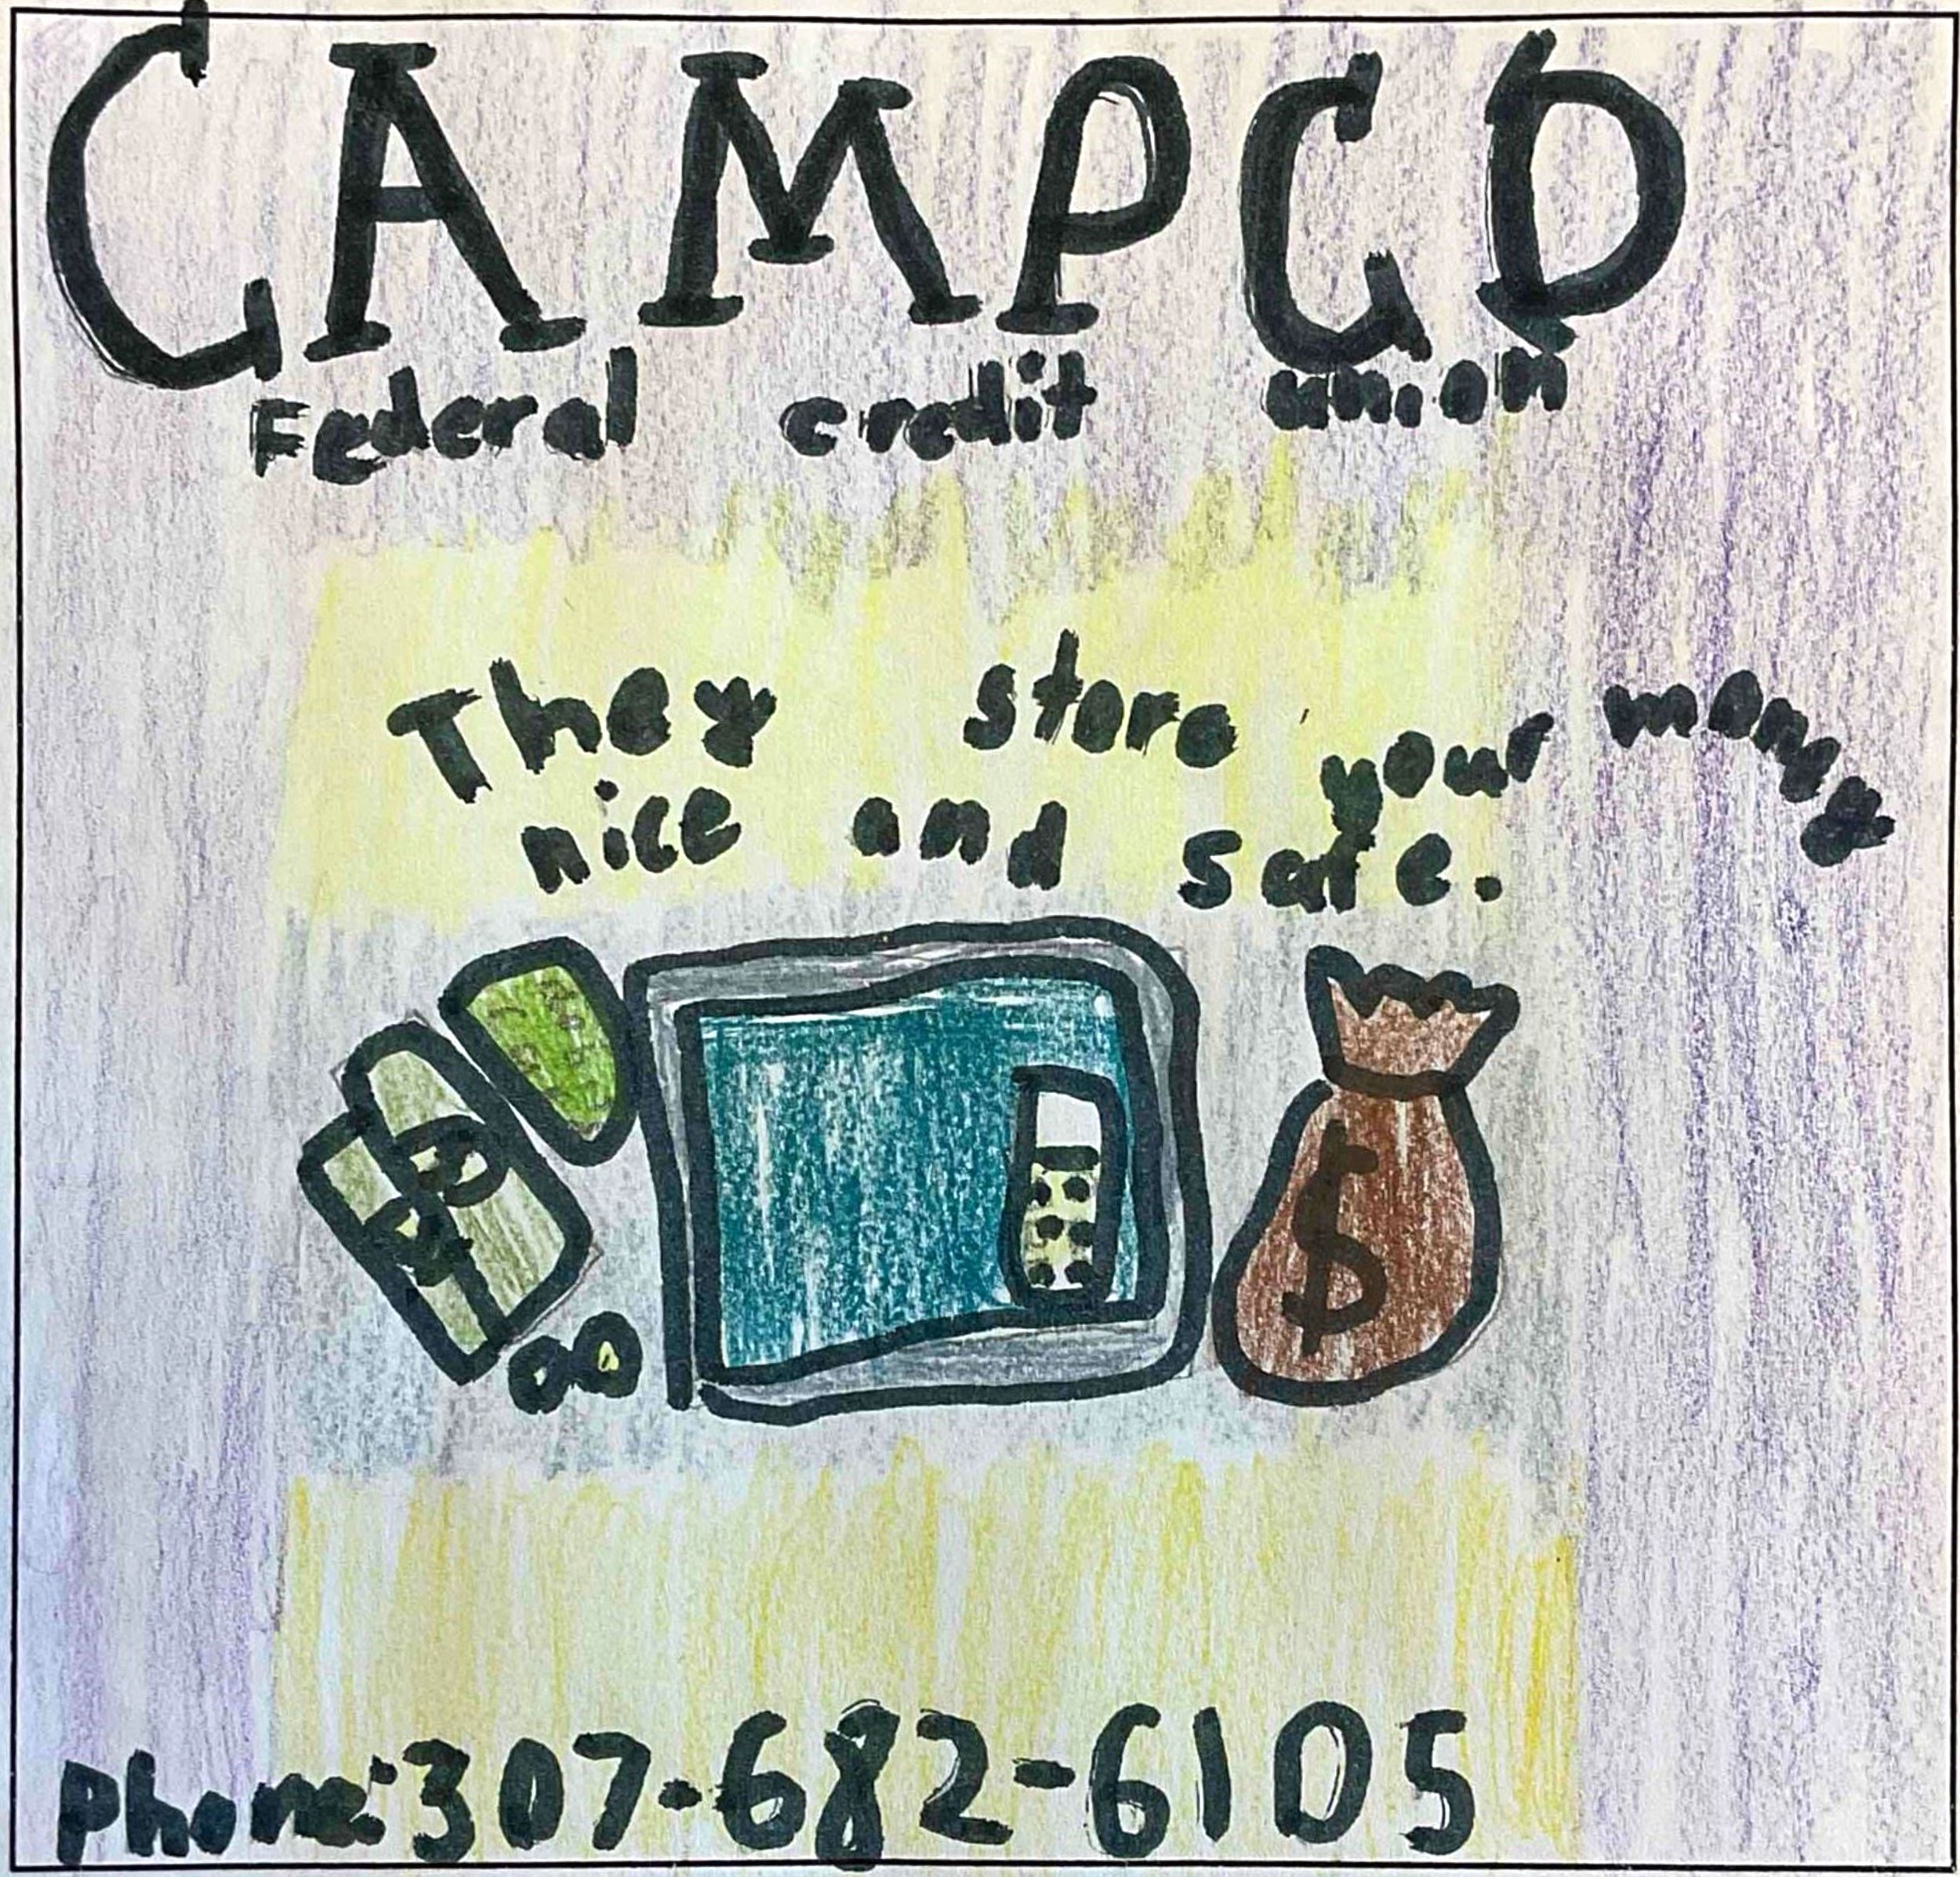 CAMPCO
Federal credit union
They store your money
nice and safe.
$
phone:307-682-6105